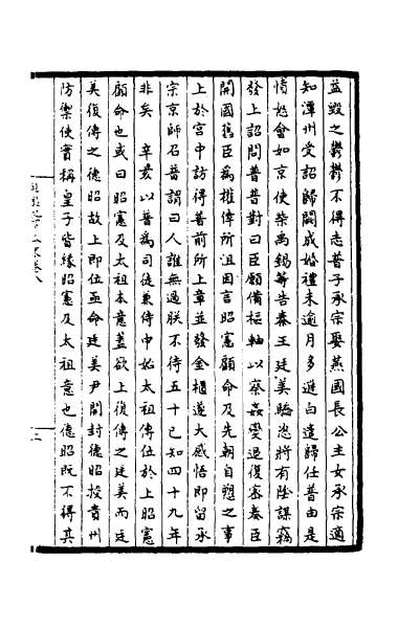 益毀之鬱鬱不得志普子承宗娶燕國長公主女承宗適
知潭州受詔歸闕成婚禮未逾月多遜白遣歸任普由是
憤怒會如京使柴禹錫等告秦王廷美驕恣將有陰謀竊
發上詔問普普對曰臣願備樞軸以察姦變退復密奏臣
開國舊臣為權倖所沮因言昭憲顧命及先朝自愬之事
上於宮中訪得普前所上章並發金櫃遂大感悟即留承
宗京師召普謂曰人誰無過朕不待五十已知四十九年
非矣 辛亥以普為司徒兼侍中始太祖傳位於上昭憲
顧命也或曰昭憲及太祖本意蓋欲上復傳之廷美而廷
美復傳之德昭故上即位亟命廷美尹開封德昭授貴州
防禦使實稱皇子皆緣昭憲及太祖意也德昭既不得其